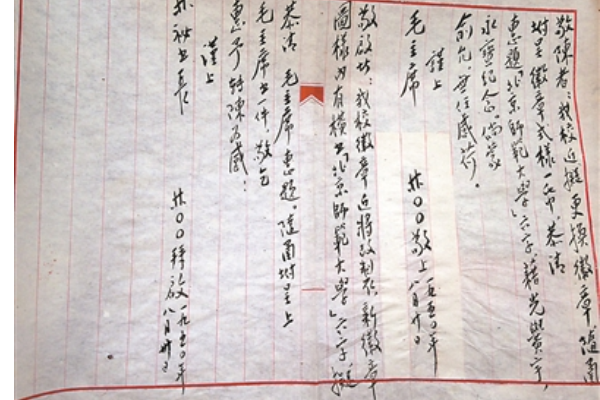 敬陳者：我校近擬更換徽章隨函
附呈徽章式樣一帋恭請
惠題「北京師範大學」六字藉光黌宇，
永資紀念。倘蒙
俞允，無任感荷。
謹上
毛主席
林〇〇敬上 一九五〇年八月廿日
敬啟者：我校徽章近將改製，新徽章
圖樣內有橫書「北京師範大學」六字，擬
恭請 毛主席惠題。隨函附呈上
毛主席書一件，敬乞
惠予轉陳為感：
謹上
林秘書長
林〇〇拜啟 一九五〇年八月廿日